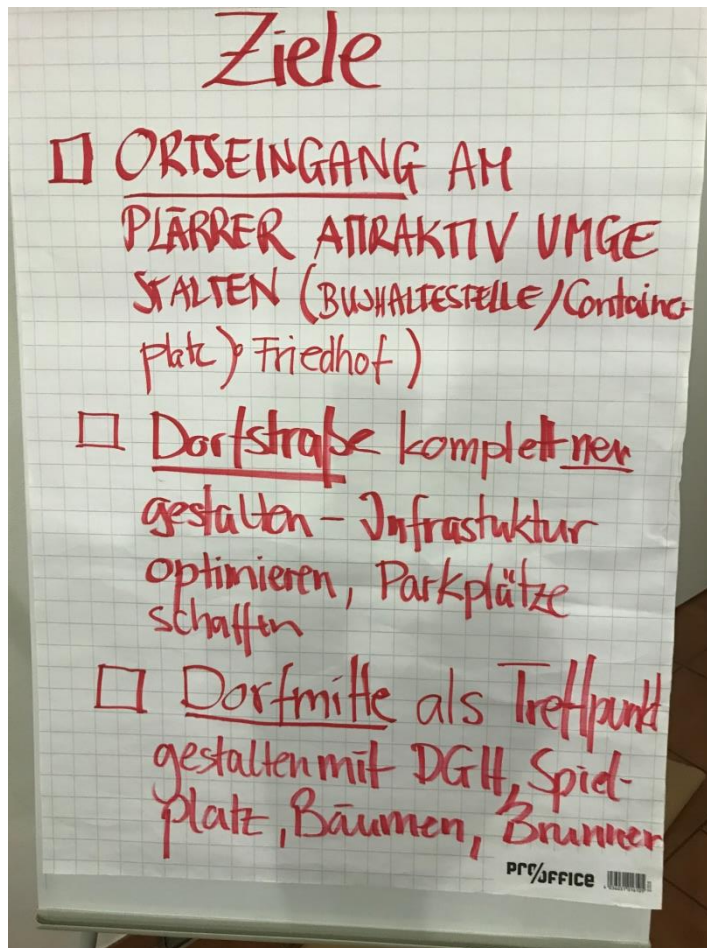 Ziele
ORTSEINGANG AM
PLÄRRER ATTRAKTIV UMGE
STALTEN (BUSHALTESTELLE/Container
platz), Friedhof)
Dorfstraße komplett neu
gestalten - Infrastuktur
optimieren, Parkplätze
schaffen
Dorfmitte als Treffpunkt
gestalten mit DGH, Spiel-
platz, Bäumen, Brunnen
Pro/OFFICE